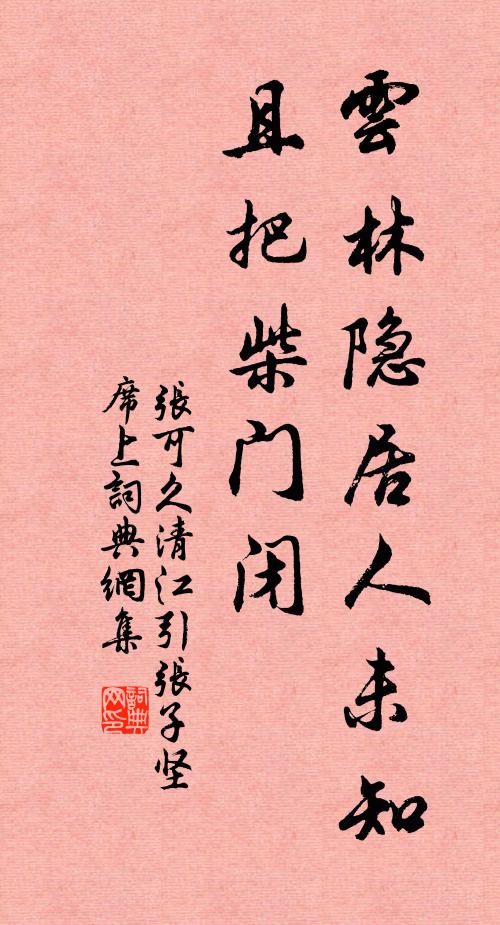 雲林隐居人未知
且把柴门闭
張可久清江引張子坚
席上詞典網集
詞典网印